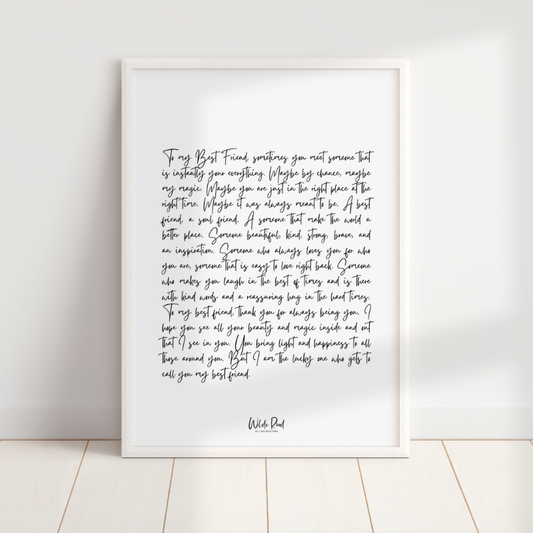 To my Best Friend, sometimes you meet someone that
is instantly your everything. Maybe by chance, maybe
my magic. Maybe you are just in the right place at the
right time. Maybe it was always meant to be. A best
friend, a soul friend. A someone that make the world a
better place. Someone beautiful, kind, strong, brave, and
an inspiration. Someone who always loves you for who
you are, someone that is easy to love right back. Someone
who makes you laugh in the best of times and is there
with kind words and a reassuring hug in the hard times.
To my best friend, thank you for always being you. I
hope you see all your beauty and magic inside and out
that I see in you. You bring light and happiness to all
those around you. But I am the lucky one who gets to
call you my best friend.